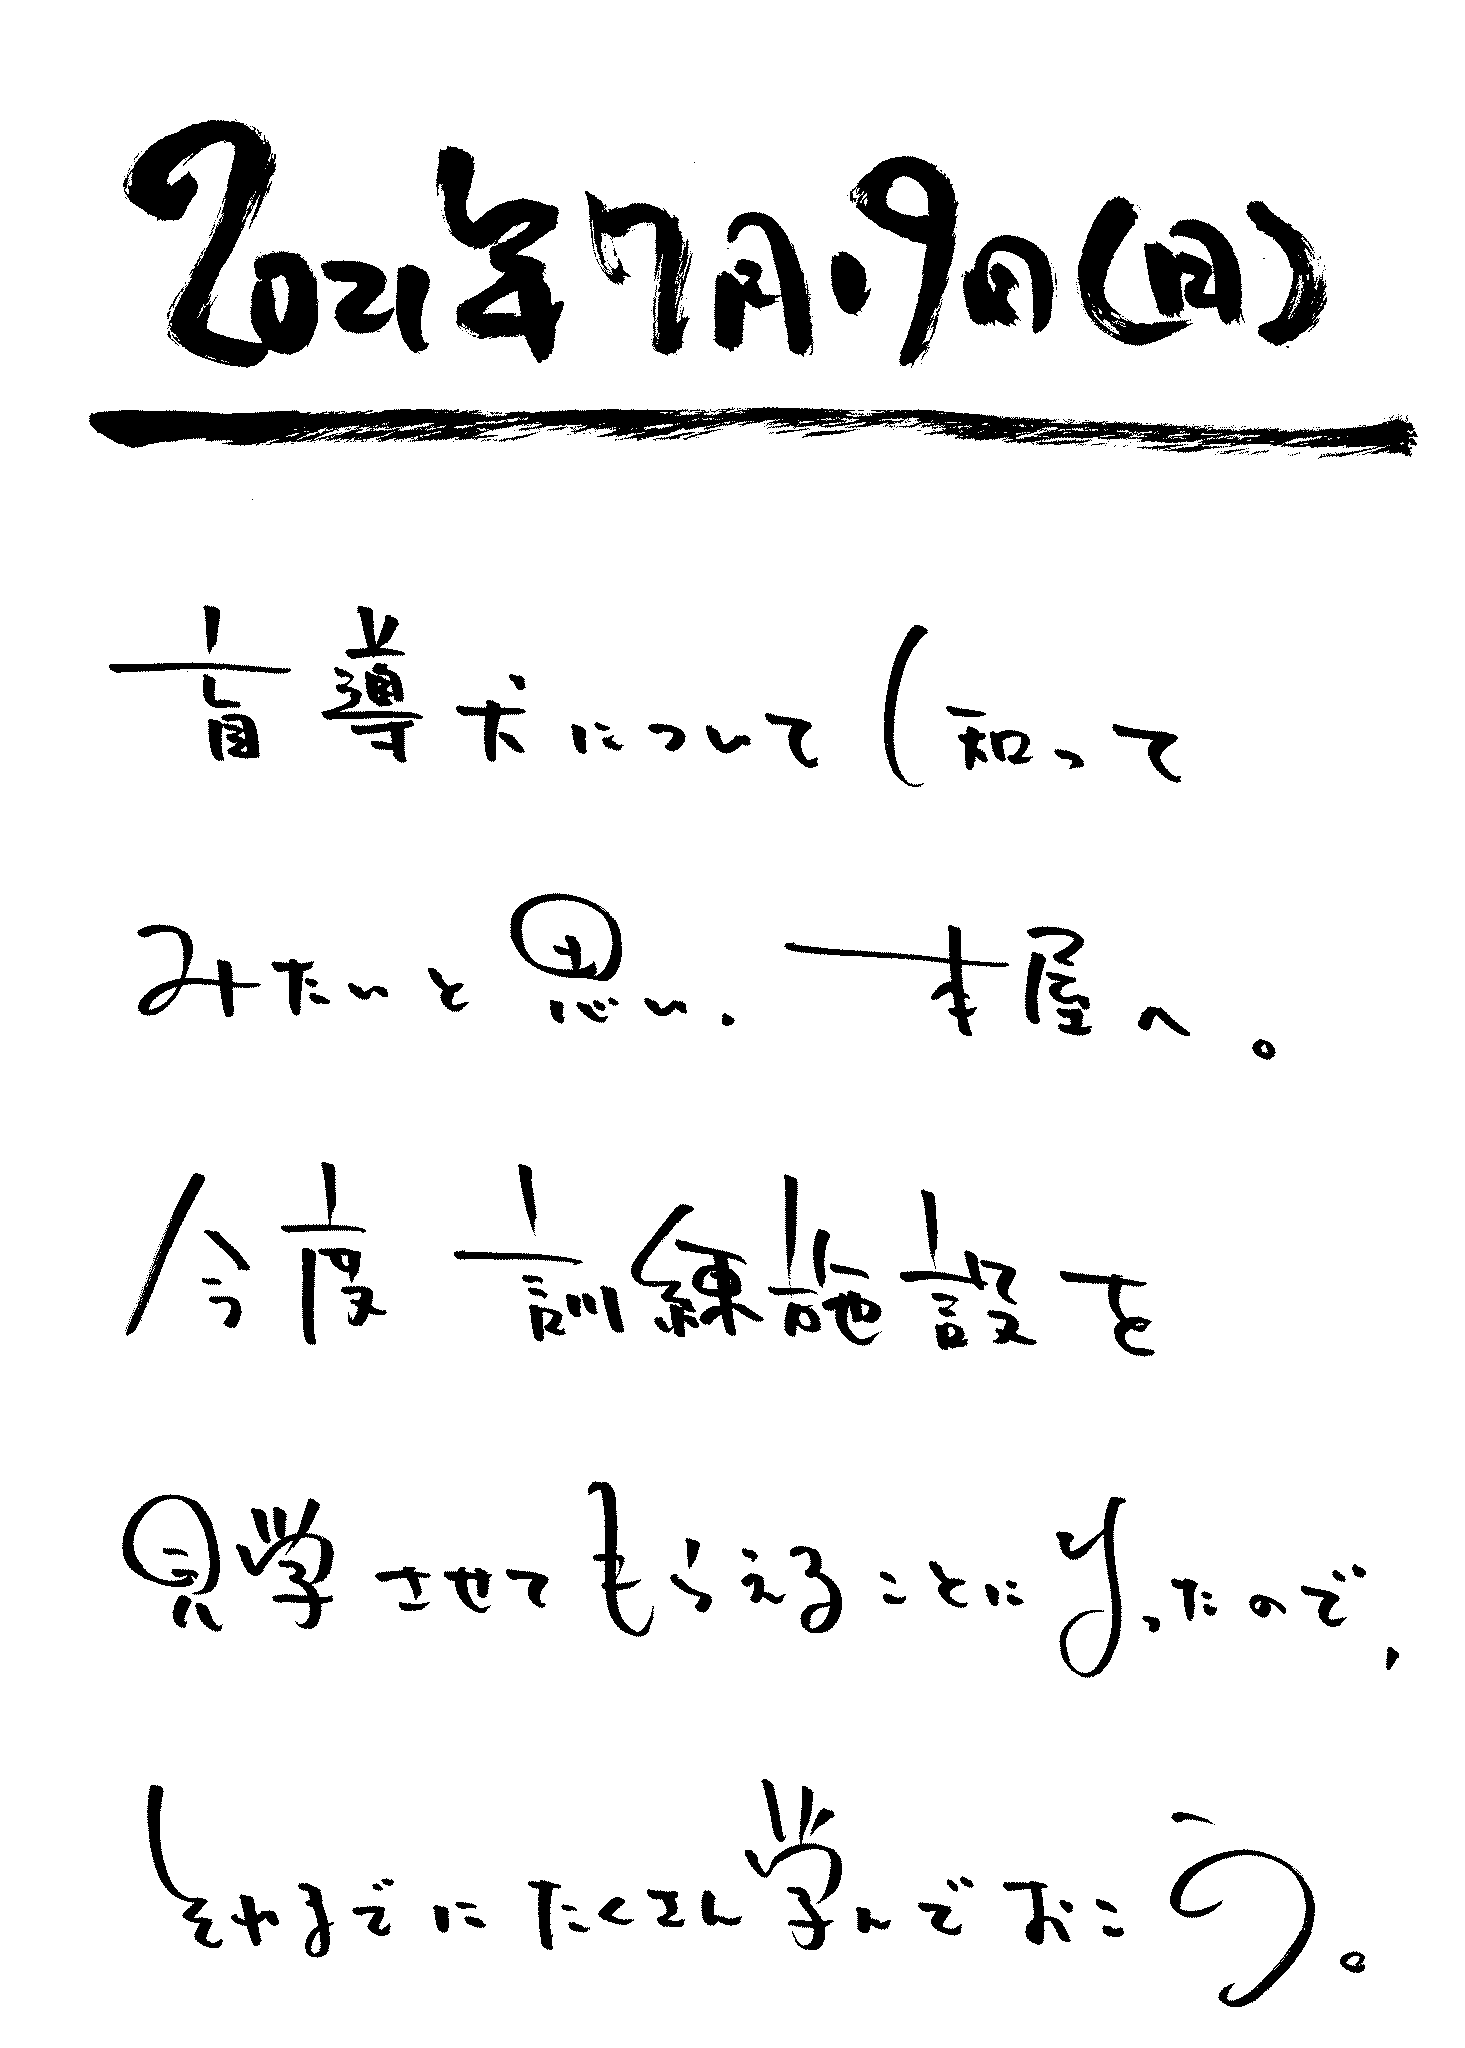 2021年7月19日(月)
盲導犬について知って
みたいと思い、本屋へ。
今度訓練施設を
見学させてもらえることになったので、
それまでにたくさん学んでおこう。